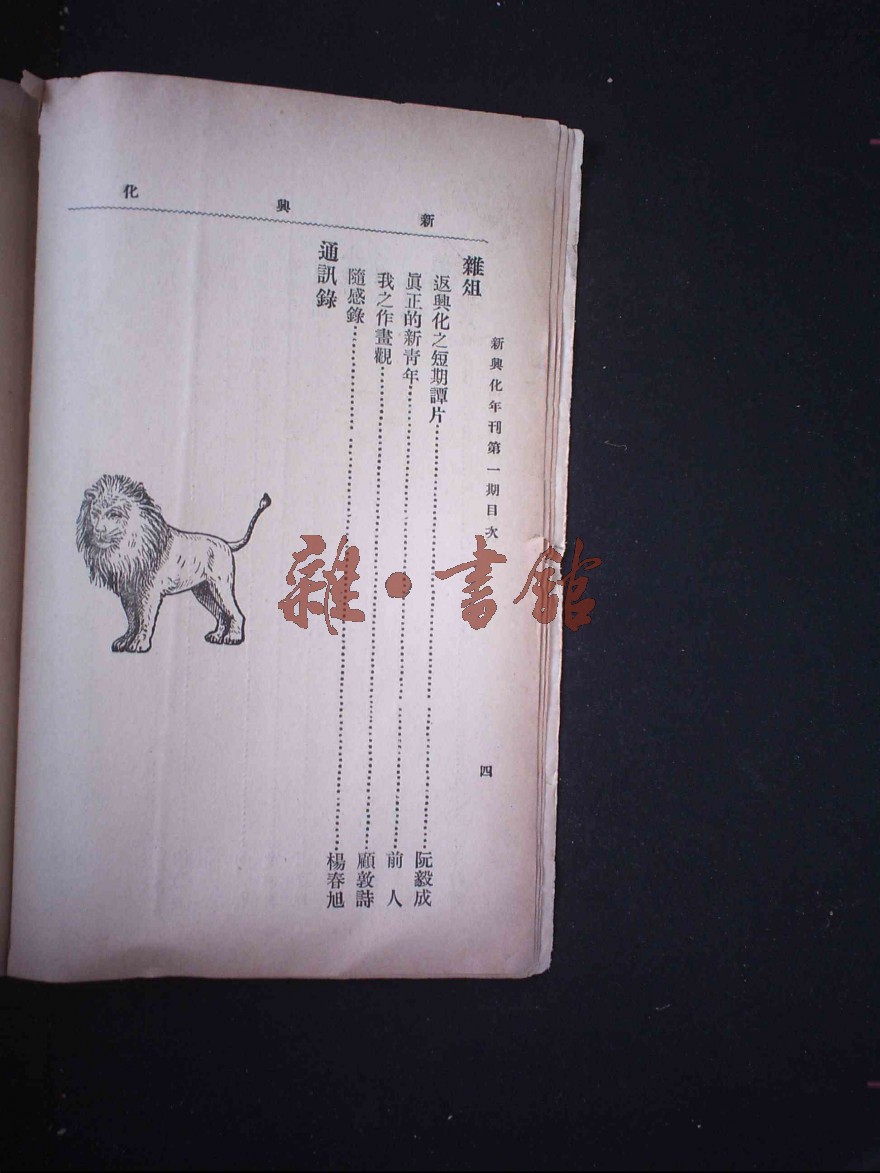 新興化
新興化年刊第一期目次
四
雜俎
返興化之短期譚片……阮毅成
眞正的新青年……前人
我之作畫觀……顧敦詩
隨感錄……楊春旭
通訊錄
雜·書館